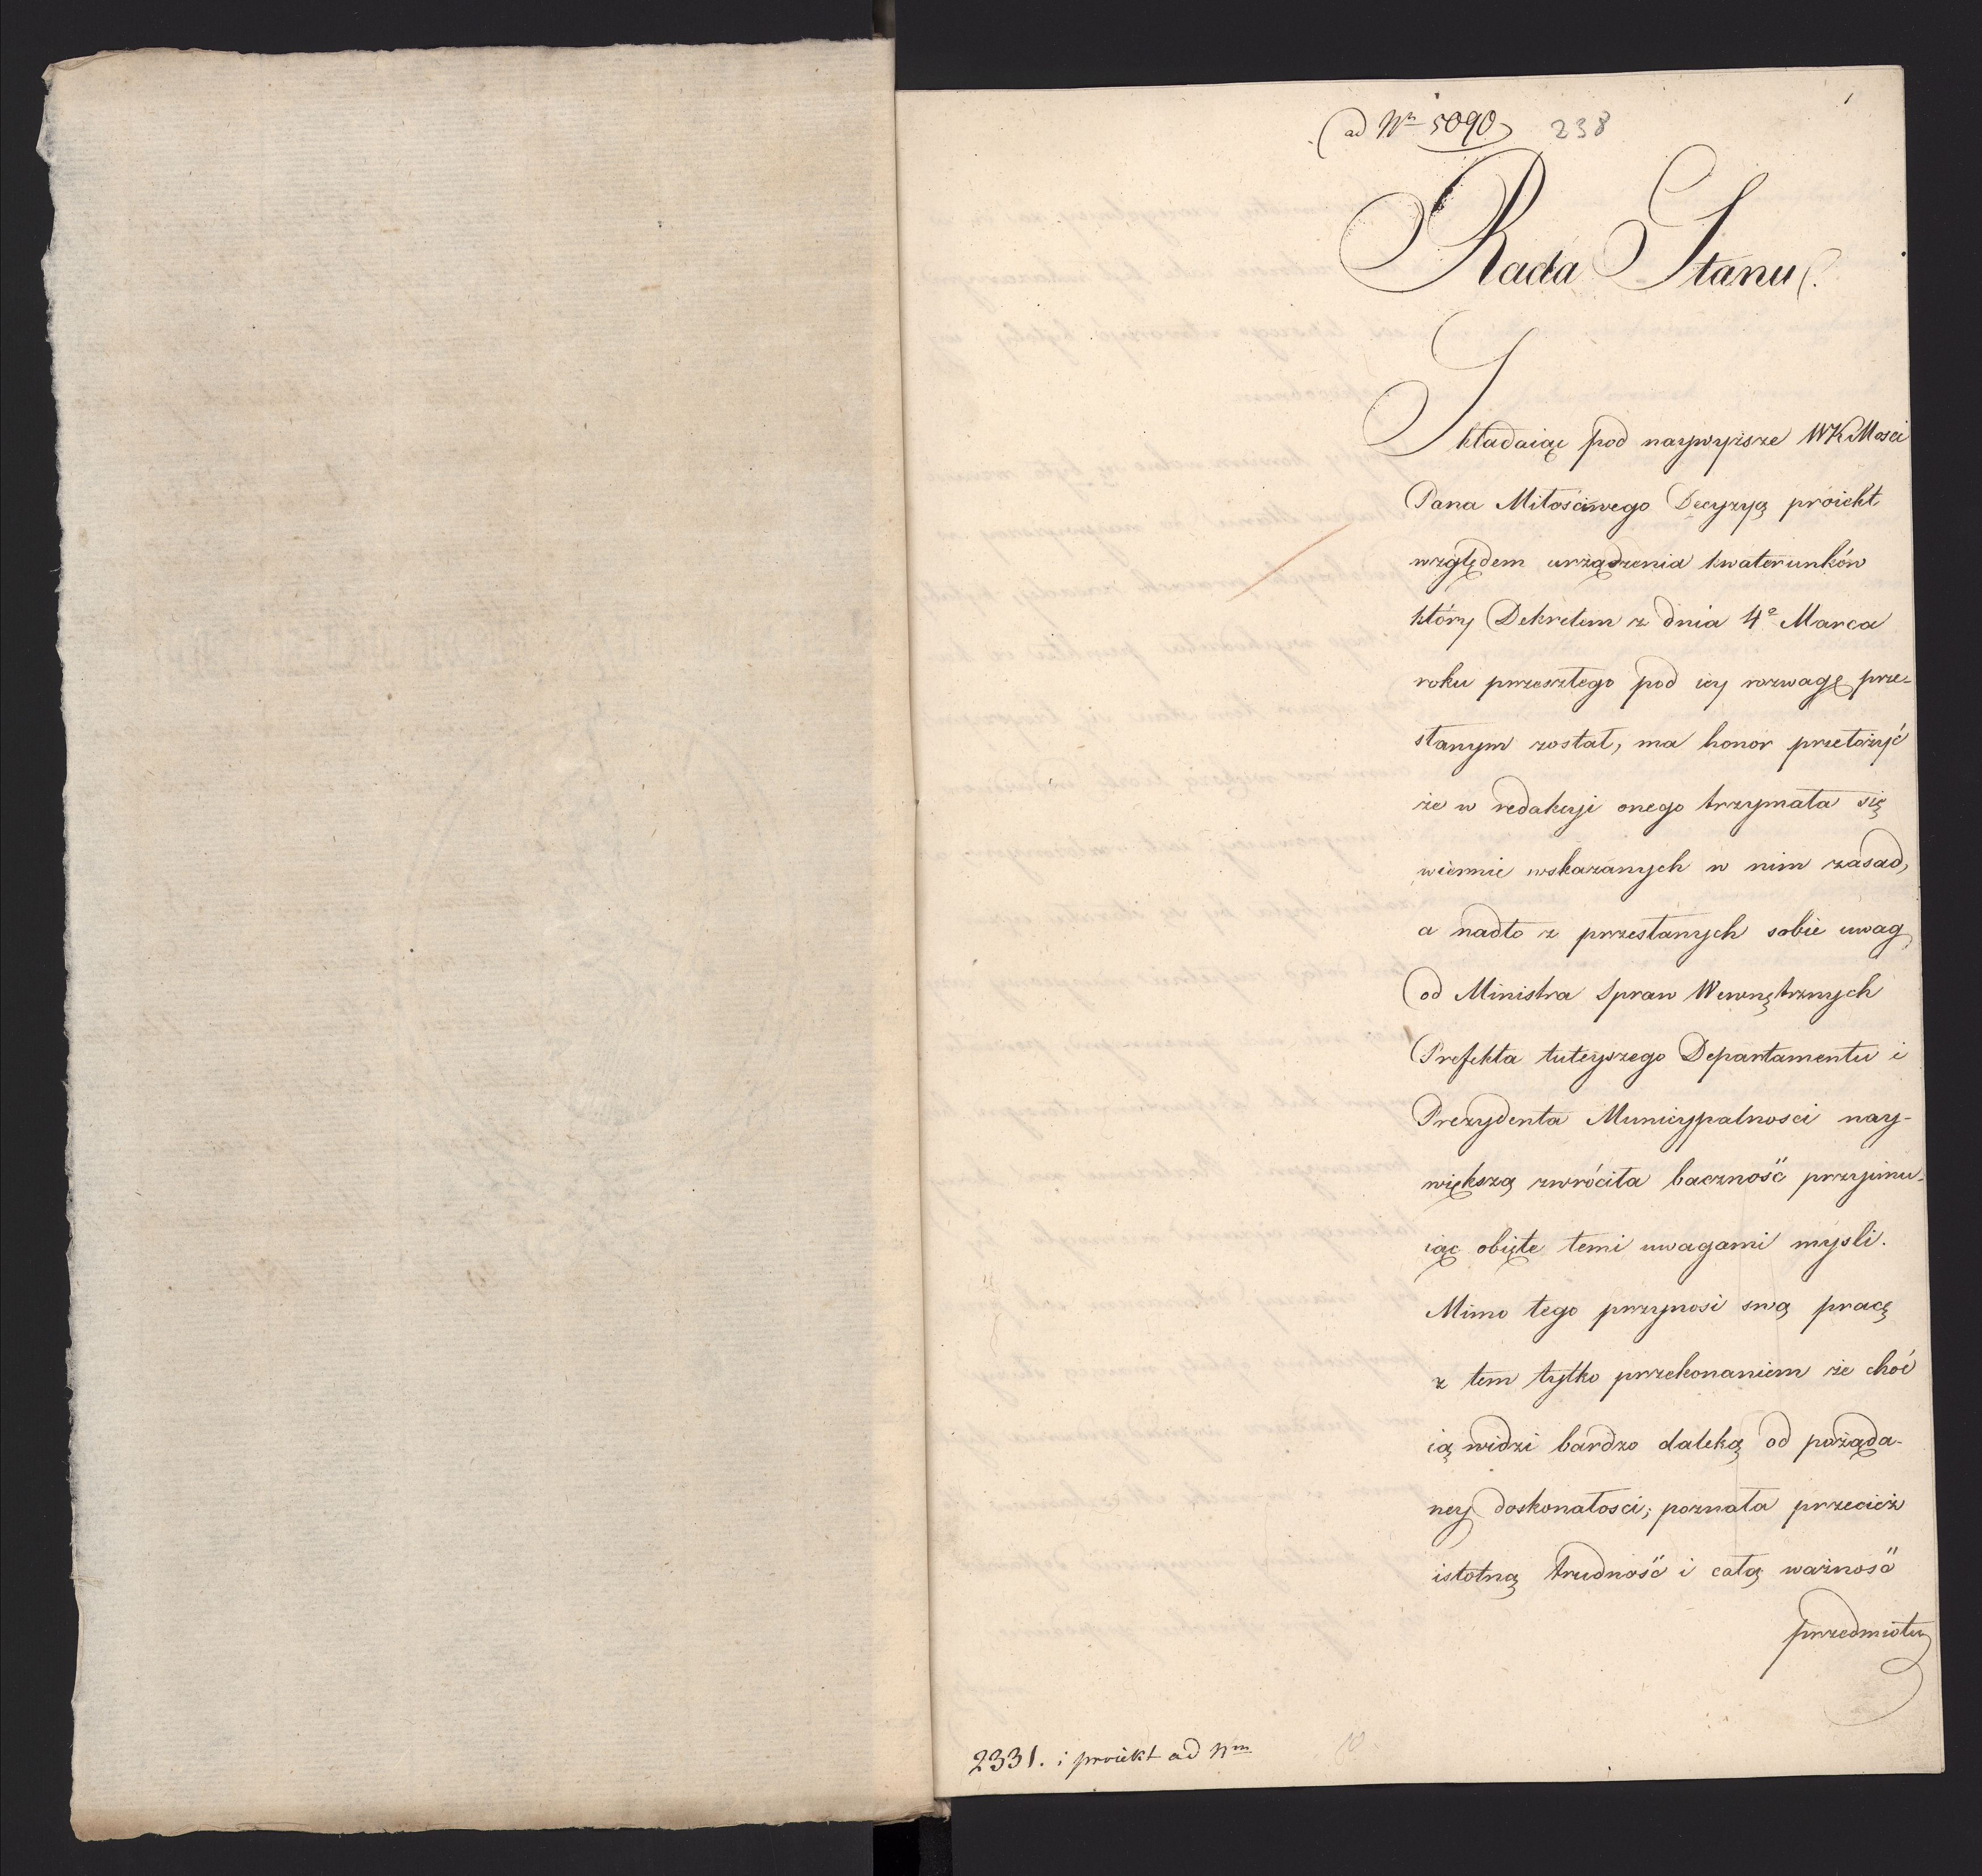 1
(ad Nm 5090) 238
Rada Stanu.
Składaiąc pod naywyższe WKMosci
Pana Miłościwego Decyzyą proiekt
względem urządzenia kwaterunków
który Dekretem z dnia 4º Marca
roku przeszłego pod iey rozwagę prze-
słanym został, ma honor przełożyć
że w redakcyi onego trzymała się
wiernie wskazanych w nim zasad,
a nadto z przesłanych sobie uwag
od Ministra Spraw Wewnętrznych
Prefekta tuteyszego Departamentu i
Prezydenta Municypalnosci nay-
większą zwróciła baczność przyjmu-
iąc obięte temi uwagami myśli.
Mimo tego przynosi swą pracę
z tem tylko przekonaniem że choć
ią widzi bardzo daleką od pożąda-
ney doskonałosci; poznała przecież
istotną trudność i całą ważność
przedmiotu
2331. i proiekt ad Nm